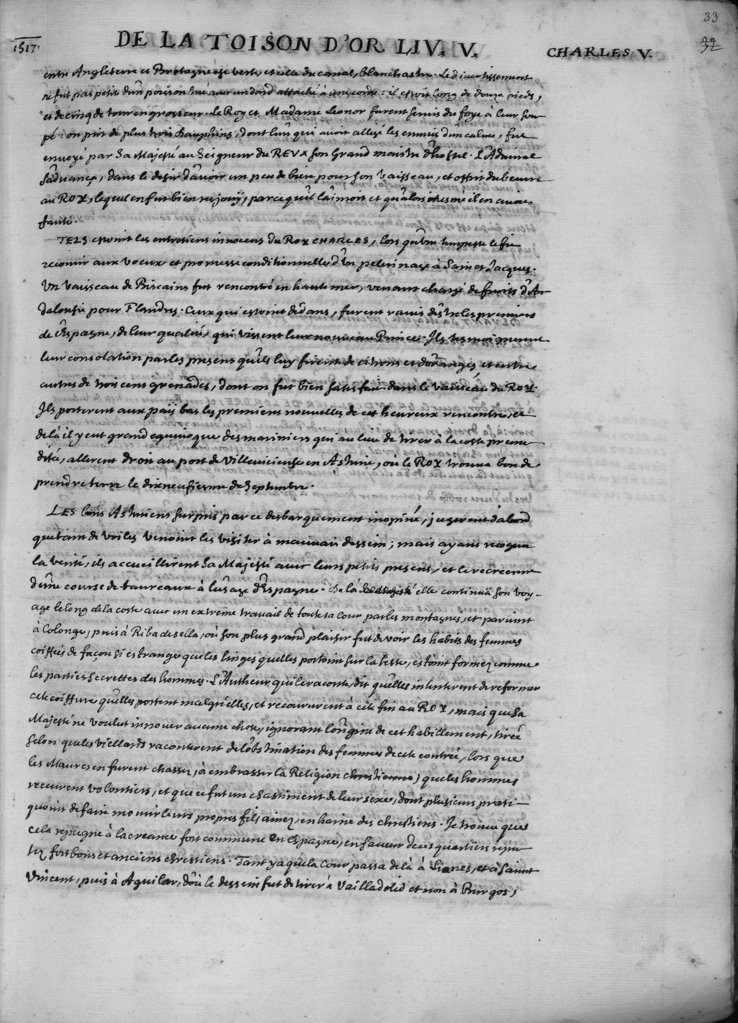 33
1517.
DE LA TOISON D'OR LIV. V.
CHARLES V.
32
entre Angleterre et Bretagne est verte, et celle du canal blanchastre. Le divertissement
ne fut pas petit d'un poisson tué avec un dard attaché à une corde : il estoit long de douze pieds,
et de cinq de tour en grosseur. Le Roy et Madame Leonor furent servis du foye à leur sou-
pé : on prit de plus trois dauphins, dont l'un qui avoit allegé les ennuis d'un calme, fut
envoyé par Sa Majesté au Seigneur du REUX son Grand maistre d'hostel. L'Admiral
s'advança, dans le desir d'avoir un peu de bien pour son vaisseau, et offrit du beurre
au ROY, lequel en fut bien resjouy, parce qu'il l'aimoit et qu'alors chez soi il en avoit
faute.
TELS estoient les entretiens innocens du ROY CHARLES, lors qu'une tempeste le fit
recourir aux voeux et promesse conditionnelle d'un pelerinage à Sainct Jacques.
Un vaisseau de Biscains fut rencontré en haute mer, venant chargé de fruits d'An-
dalousie pour Flandres. Ceux qui estoient dedans, furent ravis d'estre les premiers
de l'Espagne, de leur qualité, qui vissent leur nouveau Prince. Ils tesmoignerent
leur consolation par les presens qu'ils luy firent de citrons et d'oranges et entre
autres de trois cens grenades, dont on fut bien satisfait dans le vaisseau du ROY.
Ils porterent aux païs bas les premieres nouvelles de cet heureux rencontre, et
delà il y eut grand equivoque des mariniers qui au lieu de tirer à la coste preme-
ditée, allerent droit au port de Villeviciense en Asturie, où le ROY trouva bon de
prendre terre le dixneufieme de Septembre.
LES bons Asturiens surpris par ce desbarquement inopiné, jugerent d'abord
que tant de voiles venoient les visiter à mauvais dessein ; mais ayans recognu
la verité, ils accueillirent Sa Majesté avec leurs petits presens, et le recreerent
d'une course de taureaux à l'usage d'Espagne. De là elle continuà son voy-
age le long de la coste avec un extreme travail de toute sa Cour par les montagnes, et parvint
à Colonge, puis à Ribadesella, où son plus grand plaisir fut de voir les habits des femmes
coiffées de façon si estrange que les linges quelles portoient sur la teste, estoient formez comme
les parties secrettes des hommes. L'Autheur qui le raconte, dit qu'elles intenterent de reformer
cete coiffure qu'elles portent malgré elles, et recoururent à cete fin au ROY, mais que Sa
Majesté ne voulut innover aucune chose, ignorant l'origine de cet habillement, tirée
selon que les viellards raconterent de l'obstination des femmes de cete contrée, lors que
les Maures en furent chassez, à embrasser la Religion chrestienne, que les hommes
receurent volontiers, et que ce fut un chastiment de leur sexe, dont plusieurs prati-
quoient de faire mourir leurs propres fils ainez, en haine des chrestiens. Je trouve que
cela repugne à la creance fort commune en Espagne, en faveur de ces quartiers repu-
tez fort bons et anciens chrestiens. Tant ya que la Cour passa de là à Lianes, et à Sainct
Vincent, puis à Aquilar, d'où le dessein fut de tirer à Vailladolid et non à Burgos,